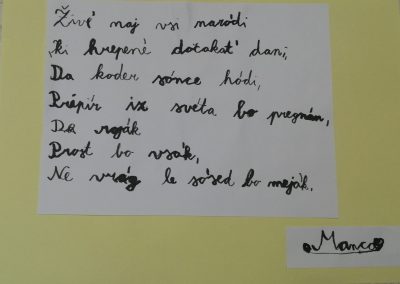 Živé naj vsi naródi
ki hrepené dočakat' dani,
Da koder sónce hódi,
Prépir iz svéta bo pregnán,
Da roják
Prost bo vsák,
Ne vrág le sósed bo meják.
Manca